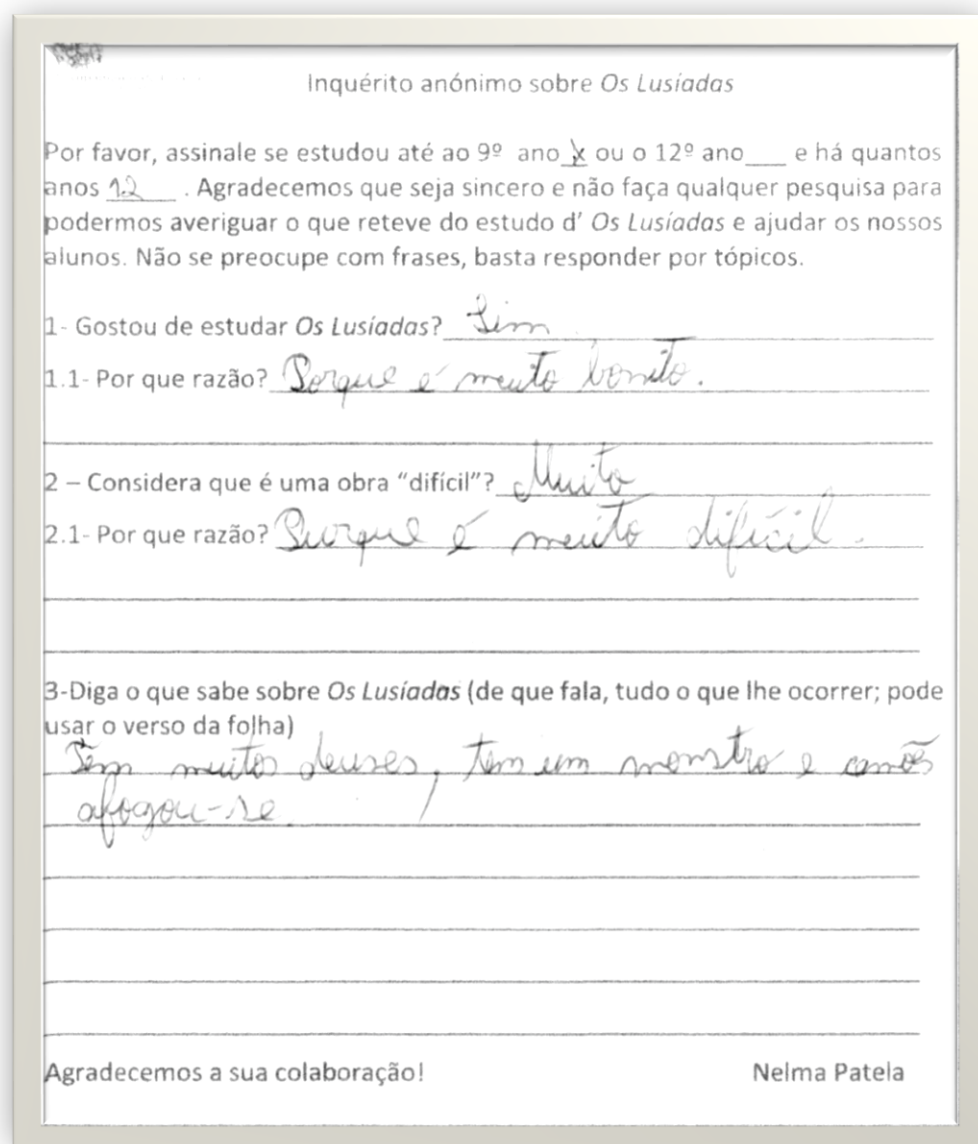 Inquérito anónimo sobre Os Lusíadas
Por favor, assinale se estudou até ao 9º ano x ou o 12º ano___ e há quantos
anos 12 . Agradecemos que seja sincero e não faça qualquer pesquisa para
podermos averiguar o que reteve do estudo d' Os Lusíadas e ajudar os nossos
alunos. Não se preocupe com frases, basta responder por tópicos.
1- Gostou de estudar Os Lusíadas? Sim
1.1- Por que razão? Porque é muito bonito.
2 – Considera que é uma obra "difícil"? Muito
2.1- Por que razão? Purque é muito difícil.
3-Diga o que sabe sobre Os Lusíadas (de que fala, tudo o que lhe ocorrer; pode
usar o verso da folha)
Tem muitos deuses, tem um monstro e camões
afogou-se
Agradecemos a sua colaboração! Nelma Patela